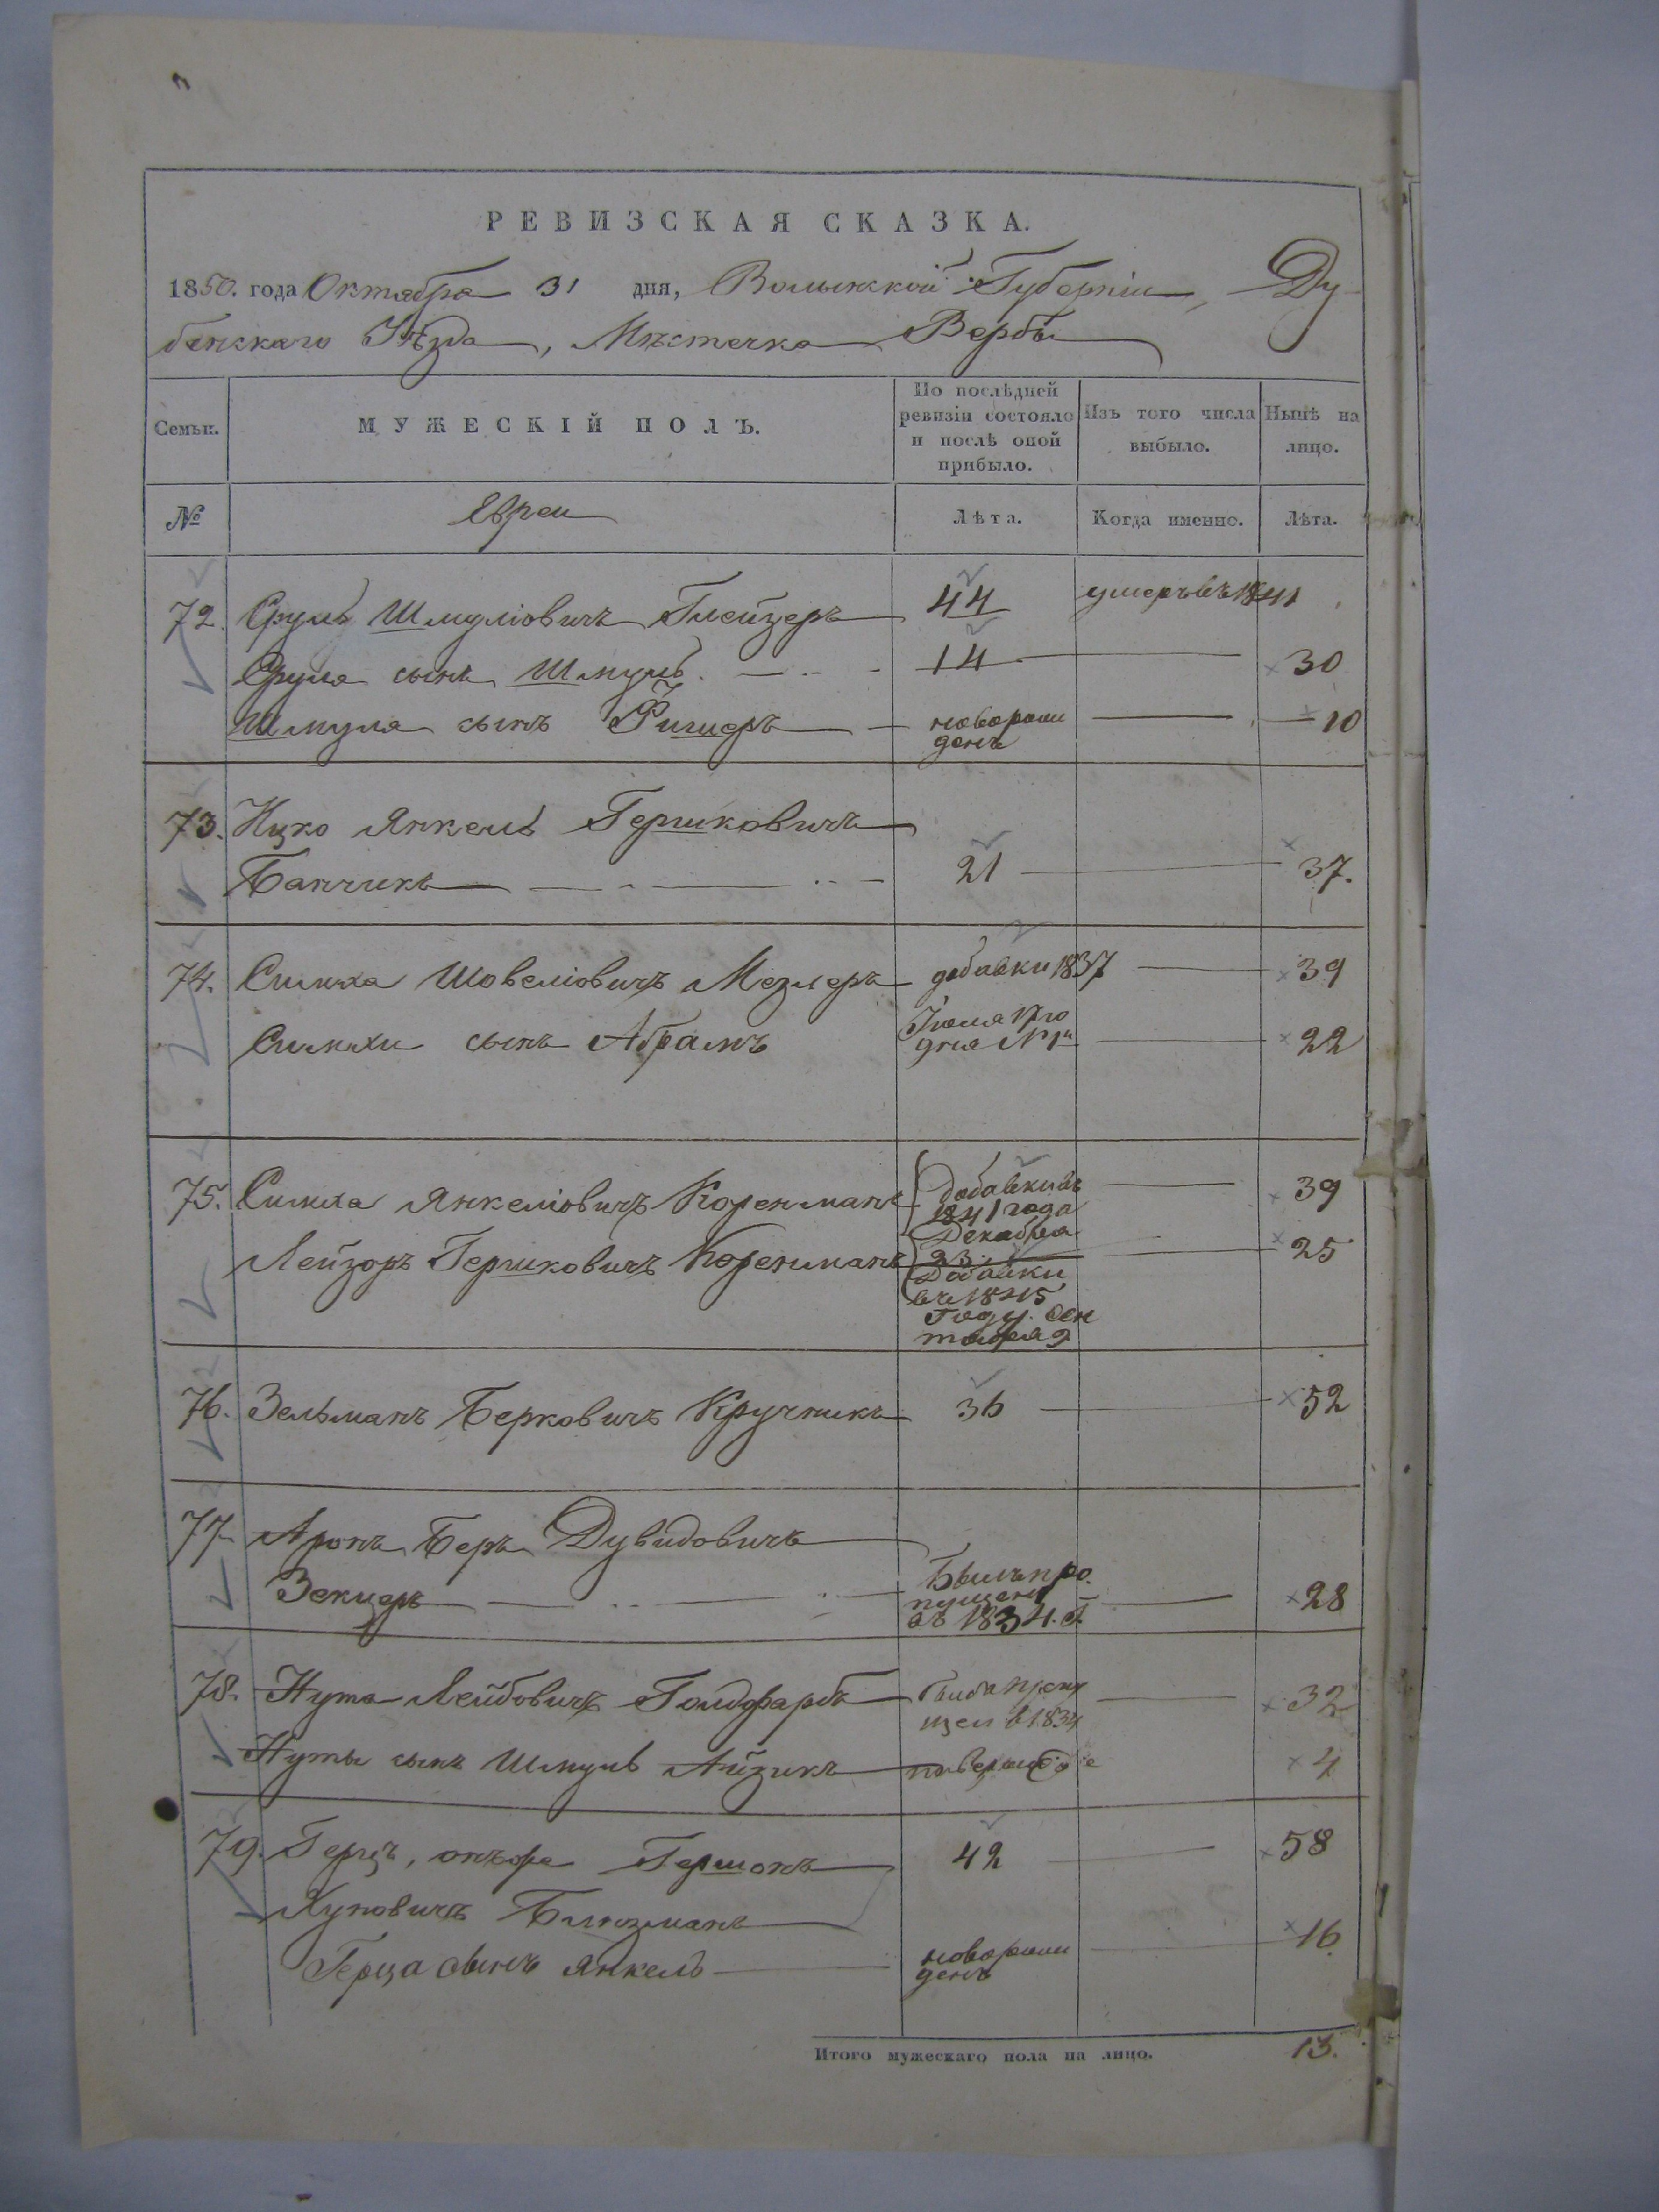 РЕВИЗСКАЯ СКАЗКА.
1850. года Октября 31 дня, Волынской Губернiи, Ду
бенскаго Уѣзда, Мѣстечка Вербы
Семьи. МУЖЕСКIЙ ПОЛЪ. По послѣдней ревизiи состояло и послѣ оной прибыло. Изъ того числа выбыло. Нынѣ на лицо.
№ Евреи Лѣта. Когда именно. Лѣта.
72. Сруль Шмулiовичъ Глейзеръ 44 умеръ въ 1841
Сруля сынъ Шмуль 14 30
Шмуля сынъ Фишеръ новорожденъ 10
73. Ицко Янкель Гершковичъ
Банчикъ 21 37.
74. Симха Шовелiовичъ Мезлеръ добавки 1837 39
Симхи сынъ Абрамъ Iюля 17го дня № 1й 22
75. Симха Янкелiовичъ Коренманъ Добавки въ 1841 года Декабря 23. 39
Лейзоръ Гершковичъ Коренманъ Добавки въ 1845 Году. Сентября 9 25
76. Зельманъ Берковичъ Кручникъ 36 52
77. Аронъ Беръ Дувидовичъ
Зекцеръ Былъ пропущенъ въ 1834. г. 28
78. Нута Лейбовичъ Голдфарбъ былъ пропущен в 1834 32
Нуты сынъ Шмуль Айзикъ 4
79. Герцъ, онъже Гершонъ 42 58
Хуновичъ Блюзманъ
Герца сынъ Янкель новорожденъ 16
Итого мужескаго пола на лицо. 13.